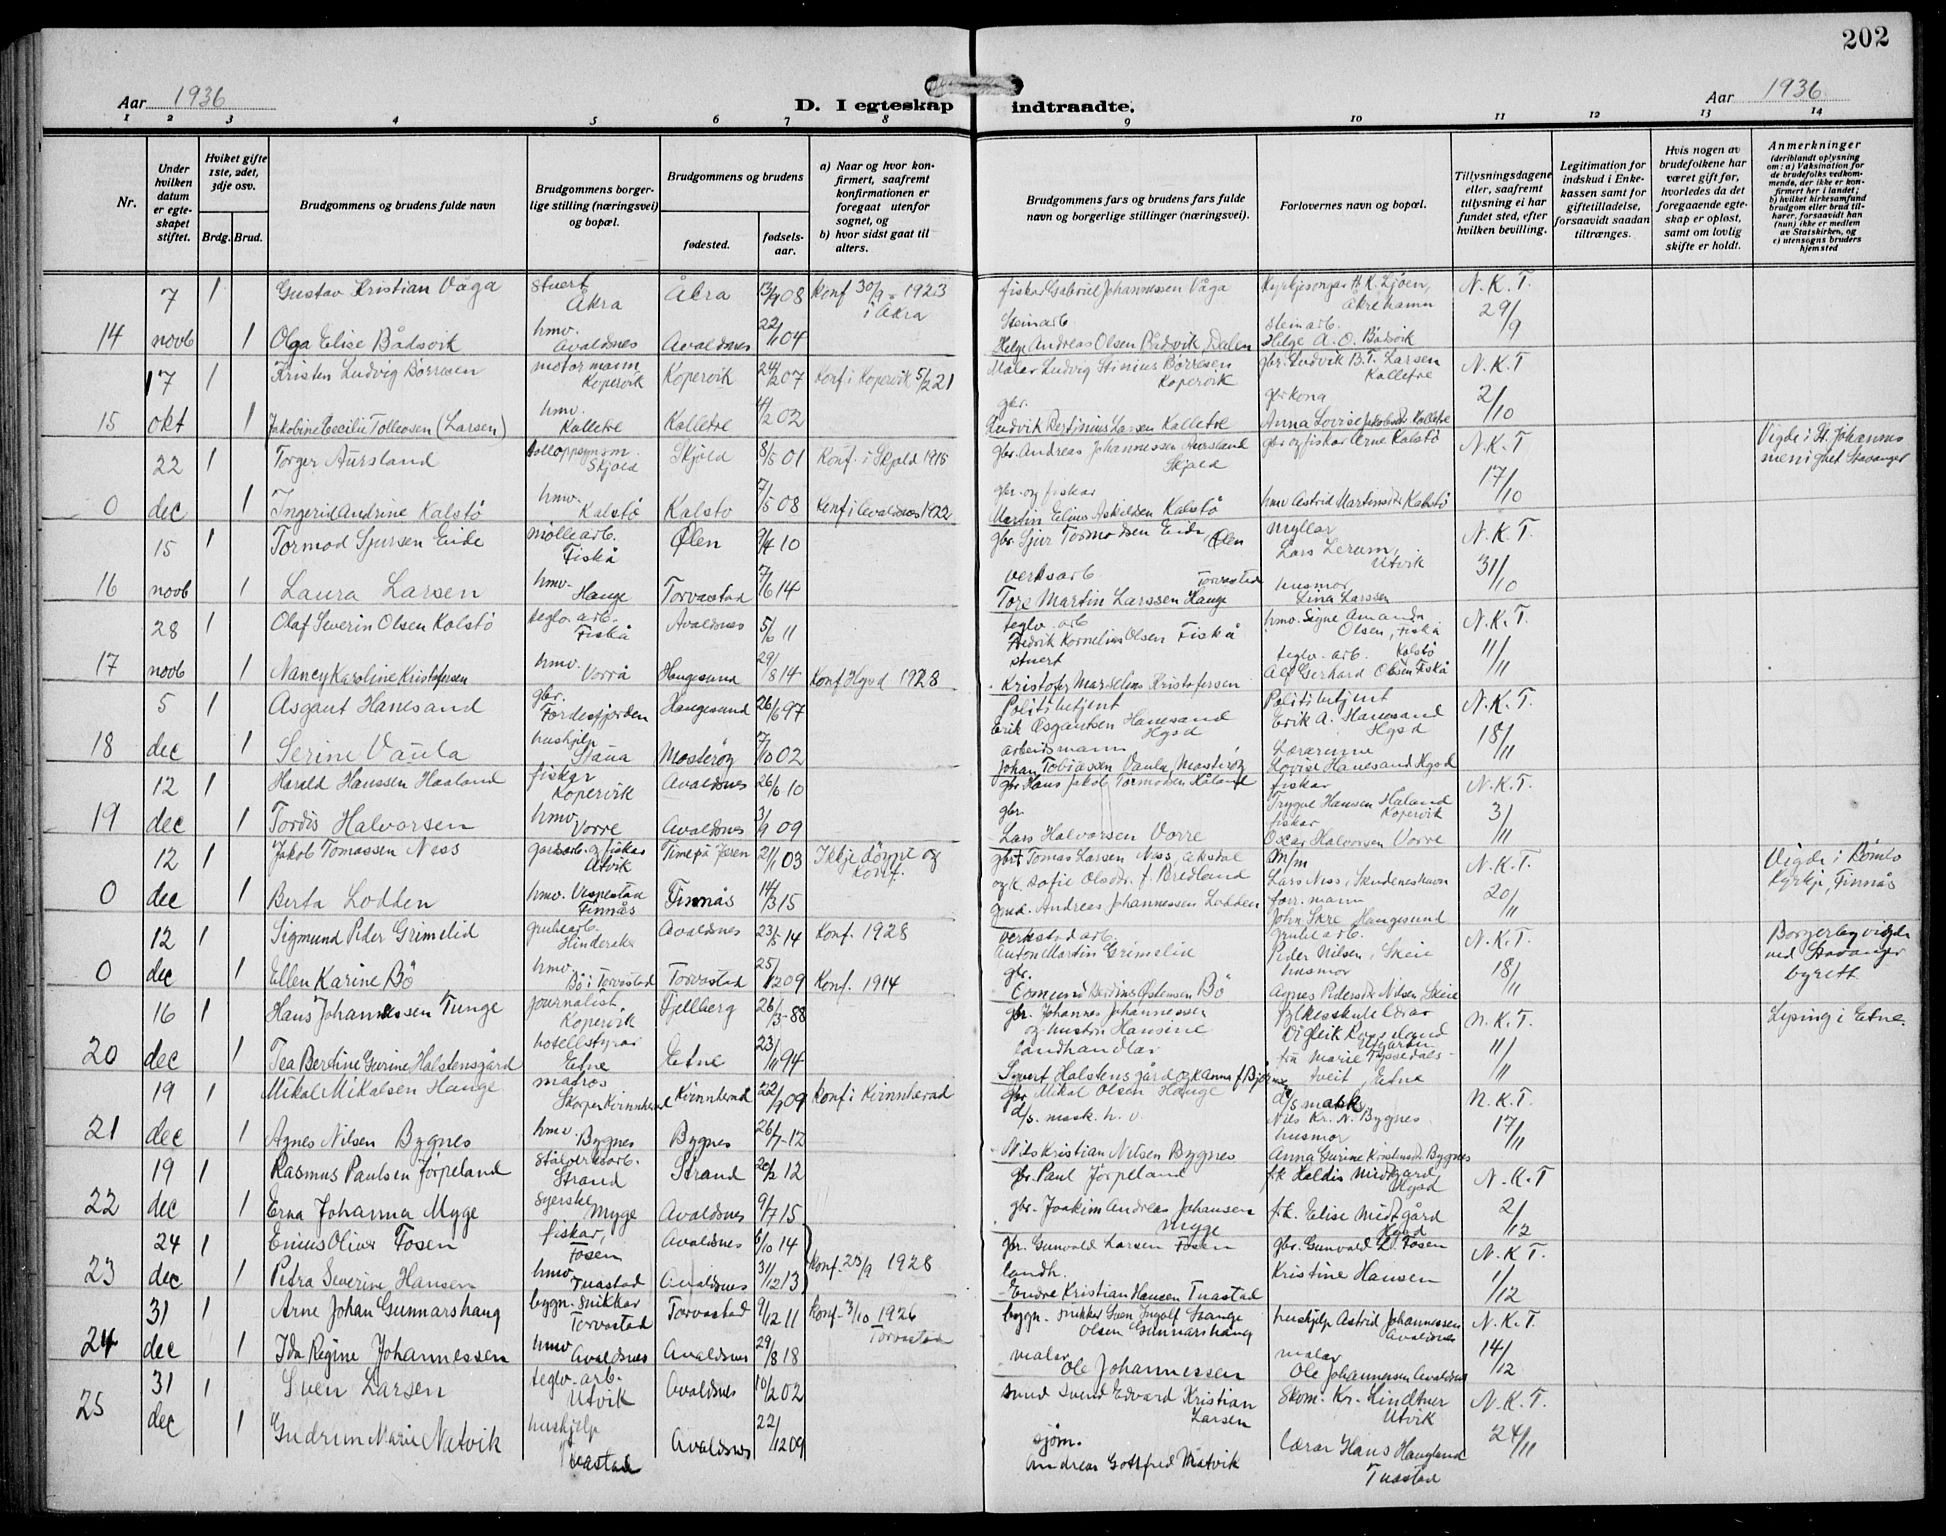 202
Aar 1936
D. I egteskap indtraadte.
Aar 1936
1 2 3 4 5 6 7 8 9 10 11 12 13 14
Nr.
Under hvilken datum er egteskapet stiftet.
Hviket gifte 1ste, 2det, 3dje osv.
Brdg. Brud.
Brudgommens og brudens fulde navn
Brudgommens borgerlige stilling (næringsvei) og bopæl.
Brudgommens og brudens
fødested.
fødselsaar.
a) Naar og hvor konfirmert, saafremt konfirmationen er foregaat utenfor sognet, og
b) hvor sidst gaat til alters.
Brudgommens fars og brudens fars fulde navn og borgerlige stillinger (næringsvei).
Forlovernes navn og bopæl.
Tillysningsdagene eller, saafremt tillysning ei har fundet sted, efter hvilken bevilling.
Legitimation for indskud i Enkekassen samt for giftetilladelse, forsaavidt saadan tiltrænges.
Hvis nogen av brudefolkene har været gift før, hvorledes da det foregaaende egteskap er opløst, samt om lovlig skifte er holdt.
Anmerkninger
(deriblandt oplysning om: a) Vaksination for de brudefolks vedkommende, der ikke er konfirmert her i landet;
b) hvilket kirkesamfund brudgom eller brud tilhører, forsaavidt han (hun) ikke er medlem av Statskirken, og
c) utensogns bruders hjemsted
7 1 Gustav Kristian Våga stuert Åkra Åkra 13/9 08 Konf 30/9 - 1923 i Åkra fiskar Gabriel Johannessen Våga Kyrkjesongar H. K. Ljøen, Åkrehamn N.K.T.
14 novb 1 Olga Elise Bådsvik hmv. Avaldsnes Avaldsnes 22/1 04 Steinarb Helge Andreas Olsen Bådsvik, Dalen steinarb. Helge A. O. Bådsvik 29/9
17 1 Kristen Ludvig Børresen motormann Kopervik Kopervik 24/2 07 Konf i Kopervik 5/2 21 Malar Ludvig Stinius Børresen Kopervik gbr. Ludvik B.T. Larsen Kalletre N.K.T
15 okt 1 Jakobine Cecilie Tolleosen (Larsen) hmv. Kalletre Kalletre 4/2 02 gbr. Ludvik Bertinius Larsen Kalletre gbrkona Anna Lovise Jakobsdt Kalletre 2/10
22 1 Torger Aursland tolloppsynsm. Skjold Skjold 8/5 01 Konf. i Skjold 1915 gbr. Andreas Johannessen Aursland Skjold gbr og fiskar Arne Kalstø N.K.T Vigde i St. Johannes menighet Stavanger
0 dec 1 Ingerid Andrine Kalstø hmv. Kalstø Kalstø 7/5 08 Konf i Avaldsnes 1922 gbr. og fiskar Martin Elius Askildsen Kalstø hmv Astrid Martinsdt Kalstø 17/10
15 1 Tormod Sjursen Eide møllearb. Fiskå Ølen 9/4 10 gbr. Sjur Tormodsen Eide, Ølen myllar Lars Lerum, Utvik N.K.T.
16 novb 1 Laura Larsen hmv. Hauge Torvastad 7/6 14 verksarb Torvastad Tore Martin Larssen Hauge husmor Lina Larssen 31/10
28 1 Olaf Severin Olsen Kalstø teglv. arb. Fiskå Avaldsnes 5/6 11 teglv. arb Fredrik Kornelius Olsen Fiskå hmv. Signe Amanda Olsen, Fiskå N.K.T.
17 novb 1 Nancy Karoline Kristofersen hmv. Vorrå Haugesund 29/8 14 Konf Hgsd 1928 stuert Kristofer Marselius Kristofersen teglv. arb. Kalstø Alf Gerhard Olsen Fiskå 11/11
5 1 Asgaut Hanesand gbr. Førdesfjorden Haugesund 26/6 97 Politibetjent Erik Osgautsen Hanesand Hgsd Politibetjent Erik A. Hanesand Hgsd N.K.T.
18 dec 1 Serine Vaula hushjelp Staua Mosterøy 7/10 02 arbeidsmann Johan Tobiassen Vaula, Mosterøy Lærarinne Lovise Hanesand Hgsd 18/11
12 1 Harald Hanssen Haaland fiskar Kopervik Avaldsnes 26/6 10 gbr Hans Jakob Tormodsen Håland fiskar Trygve Hansen Håland Kopervik N.K.T.
19 dec 1 Tordis Halvorsen hmv. Vorre Avaldsnes 3/9 09 gbr. Lars Halvorsen Vorre fiskar Oscar Halvorsen Vorre 3/11
12 1 Jakob Tomassen Ness gardsarb. og fiskar Utvik Time på Jæren 21/1 03 Ikkje døypt og konf. gbr. Tomas Larsen Ness, Aksdal og k. Sofie Olsdt. f. Bredland m/m Lars Ness, Skudeneshavn N.K.T. Vigde i Bømlo Kyrkje, Finnås
0 dec 1 Berta Lodden hmv. Vespestad Finnås Finnås 14/3 15 gmd. Andreas Johannessen Lodden forr. mann John Skre Haugesund 20/11
12 1 Sigmund Peder Grimelid grubearb. Hinderaker Avaldsnes 23/5 14 Konf. 1928 verkstadarb. Anton Martin Grimelid grubearb. Peder Nilsen, Skeie N.K.T. Borgerleg vigde ved Stavanger byrett
0 dec 1 Ellen Karine Bö hmv. Bö i Torvastad Torvastad 25/12 09 Konf. 1914 gbr. Edmund Berdinus Østensen Bö husmor Agnes Pedersdt Nilsen Skeie 18/11
16 1 Hans Johannessen Tunge journalist Kopervik Fjelberg 26/3 - 88 gbr. Johannes Johannessen og hustru Hansine fylkesskulelærar Vigleik Røgeland Utgården N.K.T. Lysing i Etne.
20 dec 1 Tea Bertine Gurine Halstensgård hotellstyrar Etne Etne 23/11 94 landhandlar Sivert Halstensgård og k Anna f. Bjørnse frk Marie Tyssedals- tveit, Etne 11/11
19 1 Mikal Mikalsen Hauge matros Skorpe Kvinnherad Kvinnherad 22/9 09 Konf i Kvinnherad gbr Mikal Olsen Hauge d/s mask. Nils Kr. N. Bygnes N.K.T.
21 dec 1 Agnes Nilsen Bygnes hmv. Bygnes Bygnes 26/7 - 12 d/s. mask. h. v. Nils Kristian Nilsen Bygnes husmor Anna Gurine Kristensdt Bygnes 17/11
19 1 Rasmus Paulsen Jørpeland stålverksarb. Strand Strand 20/2 12 gbr Paul Jørpeland frk Haldis Midtgård Hgsd N.K.T
22 dec 1 Erna Johanna Myge syerske Myge Avaldsnes 9/7 15 gbr. Joakim Andreas Johansen Myge frk. Elise Midtgård Hgsd 2/12
24 1 Enius Oliver Fosen fiskar, Fosen Avaldsnes 6/10 14 gbr. Gunvald Larsen Fosen gbr. Gunvald L. Fosen N.K.T.
23 dec 1 Petra Severine Hansen hmv Tuastad Avaldsnes 31/12 13 Konf. 23/9 1928 landh. Endre Kristian Hansen Tuastad Kristine Hansen 1/12
31 1 Arne Johan Gunnarshaug bygn. snikkar Torvastad Torvastad 9/12 11 Konf. 3/10 1926 Torvastad bygn. snikker Sven Ingolf Stange Olsen Gunnarshaug hushjelp Astrid Johannessen Avaldsnes N.K.T.
24 dec 1 Ida Regine Johannessen hmv Avaldsnes Avaldsnes 29/8 18 malar Ole Johannessen malar Ole Johannessen Avaldsnes 14/12
31 1 Sven Larsen teglv. arb. Utvik Avaldsnes 10/2 02 smed Svend Edvard Kristian Larsen Skom. Kr. Lindtner Utvik N.K.T.
25 dec 1 Gudrun Marie Natvik hushjelp Tuastad Avaldsnes 22/12 09 sjøm. Andreas Gottfred Natvik lærar Hans Haugland Tuastad 24/11